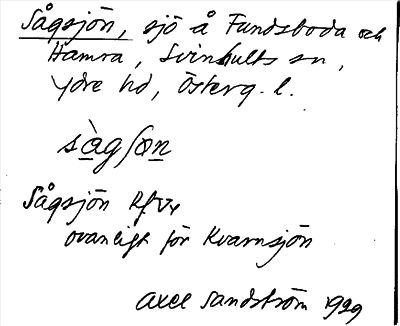 Sågsjön, sjö å Fundsboda och
Hamra, Svinhults sn,
Ydre hd, Österg. l.
sàgſon
Sågsjön
ovanligt för Kvarnsjön
Axel Sandström 1929